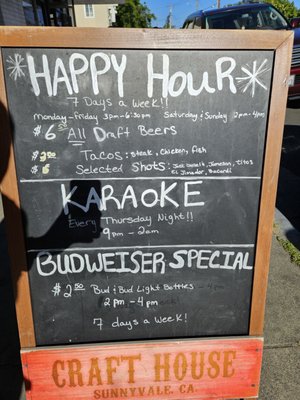 HAPPY HOUR
7 Days a week!!
Monday-Friday 3pm-6:30pm Saturday & Sunday 2pm-4pm
$6.50 All Draft Beers
$3.00 Tacos: steak, chicken, fish
$5 Selected Shots: Jack Daniels, Jameson, Titos
El Jimador, Bacardi
KARAOKE
Every Thursday Night!!
9pm - 2am
BUDWEISER SPECIAL
$2.50 Bud & Bud Light Bottles
2pm - 4pm
7 days a week!
CRAFT HOUSE
SUNNYVALE, CA.